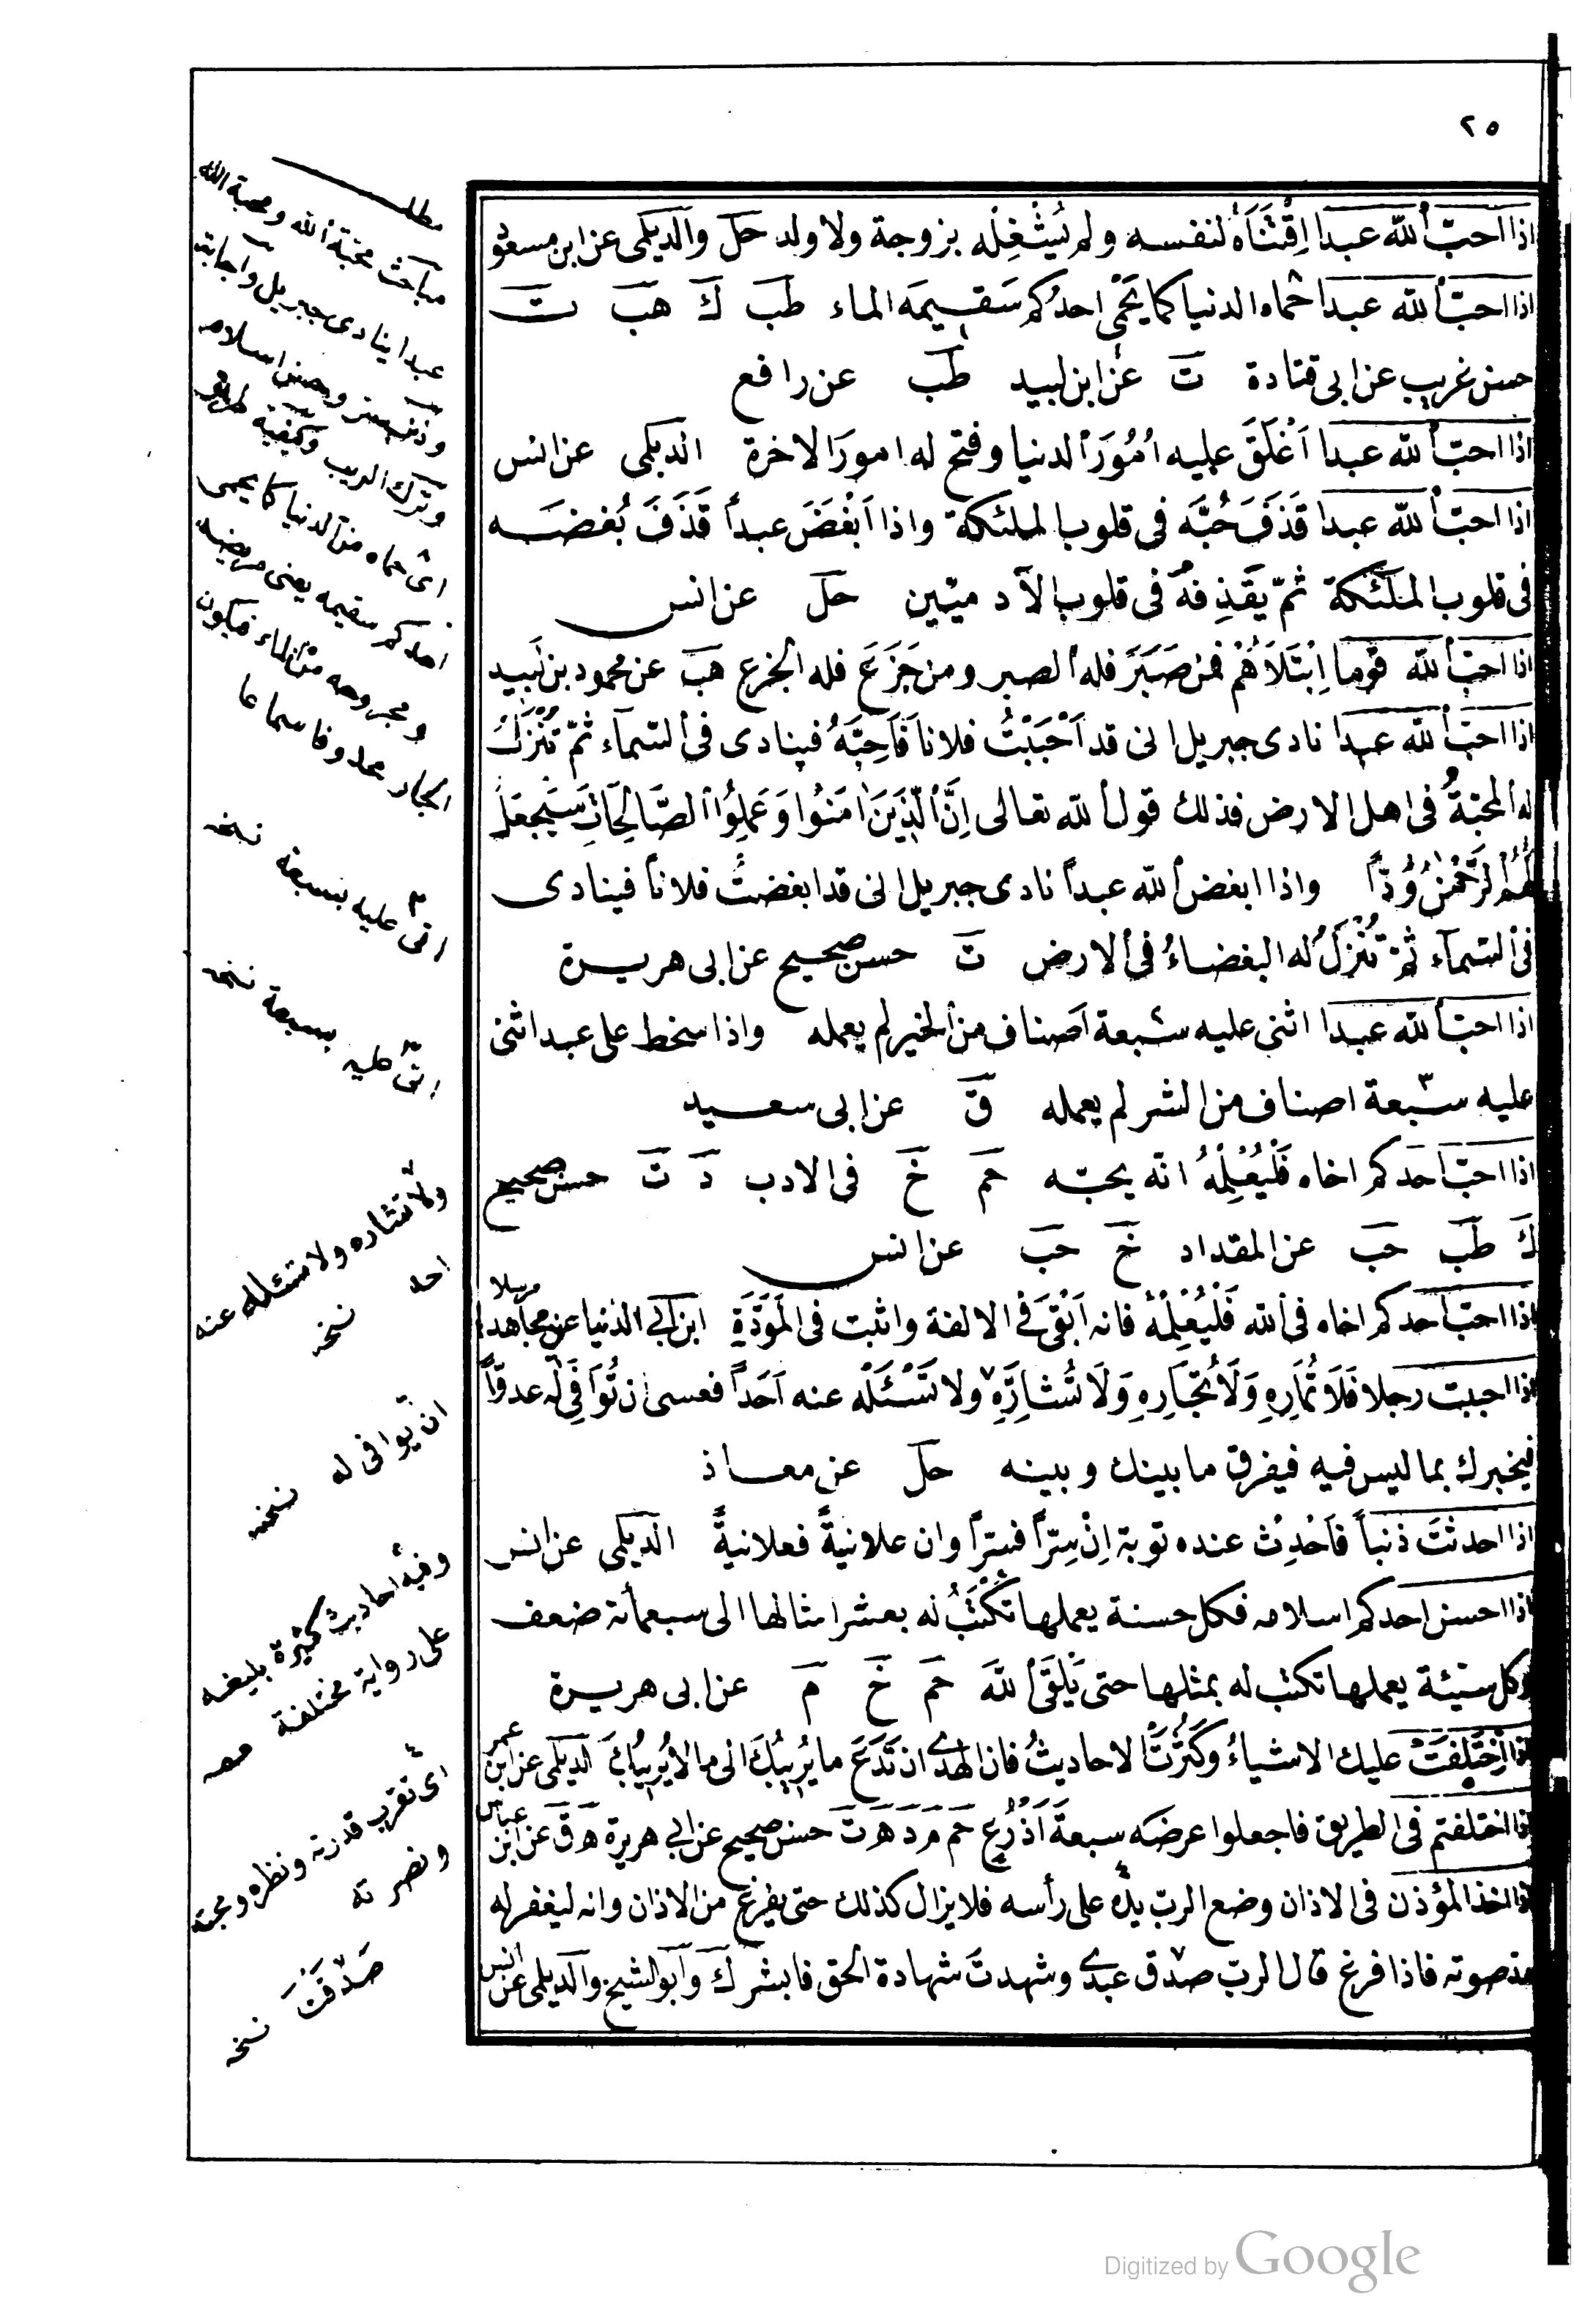 ٢٥
اذا احبّ الله عبدا اِقْتَنَاهُ لنفسه ولم يُشْغِلْه بزوجة ولا ولد حل والديلمى عن ابن مسعود
اذا احبّ الله عبدا حماه الدنيا كما يَحْمِى احدُكم سَقيمَه الماء طب ك هب ت
حسن غريب عن ابى قتادة ت عن ابن لبيد طب عن رافع
اذا احبّ الله عبدا اَغْلَقَ عليه اُمُورَ الدنيا وفتح له امورَ الاخرة الديلمى عن انس
اذا احبّ الله عبدا قَذَفَ حُبَّه فى قلوب الملئكة واذا اَبْغَضَ عبداً قَذَفَ بُغضَه
فى قلوب الملئكة ثمّ يَقْذِفُهُ فى قلوب الآدميّين حل عن انس
اذا احبّ الله قوما اِبْتَلَاهُمْ فمن صَبَرَ فله الصبر ومن جَزَعَ فله الجزع هب عن محمود بن لبيد
اذا احبّ الله عبدا نادى جبريل انى قد اَحْبَبْتُ فلانا فَاَحِبَّهُ فينادى فى السّماء ثمّ تُنْزَلُ
له المحبّةُ فى اهل الارض فذلك قول الله تعالى اِنَّ الَّذِينَ اٰمَنُوا وَعَمِلُوا الصَّالِحَاتِ سَيَجْعَلُ
لَهُمُ الرَّحْمٰنُ وُدًّا واذا ابغض الله عبداً نادى جبريل انى قد ابغضتُ فلاناً فينادى
فى السّماء ثمّ تُنْزَلُ له البغضاءُ فى الارض ت حسن صحيح عن ابى هريرة
اذا احبّ الله عبدا اثنى عليه سبعة اصناف من الخير لم يعمله واذا سخط على عبد اثنى
عليه سبعة اصناف من الشر لم يعمله ق عن ابى سعيد
اذا احبّ احدكم اخاه فَلْيُعْلِمْهُ انّه يحبّه حم خ فى الادب د ت حسن صحيح
ك طب حب عن المقداد خ حب عن انس
اذا احبّ احدكم اخاه فى الله فَلْيُعْلِمْهُ فانه اَبْقَى فى الالفة واثبت فى المَوَدَّةِ ابن ابى الدنيا عن مجاهد مرسلا
اذا احببت رجلا فَلَا تُمَارِهِ وَلَا تُجَارِهِ وَلَا تُشَارِّهِ ولا تَسْئَلْه عنه اَحَداً فعسى ان تُوَافِىَ له عدوّاً
فيخبرك بما ليس فيه فيفرق ما بينك وبينه حل عن معاذ
اذا احدثتَ ذنباً فَاَحْدِثْ عنده توبة اِنْ سِرّاً فسرّاً وان علانيةً فعلانيةً الديلمى عن انس
اذا احسن احدكم اسلامه فكل حسنة يعملها تُكْتَبُ له بعشر امثالها الى سبعمأئة ضعف
وكل سيّئة يعملها تكتب له بمثلها حتى يَلْقَى اللهَ حم خ م عن ابى هريرة
اذا اخْتَلَفَتْ عليك الاشياءُ وكَثُرَتْ الاحاديثُ فان الهدى ان تَدَعَ ما يُرِيبُكَ الى ما لا يُرِيبُكَ الديلمى عن ابن عمر
اذا اختلفتم فى الطريق فاجعلوا عرضَه سبعةَ اَذْرُعٍ حم م د ه ت حسن صحيح عن ابى هريرة ه ق عن ابن عباس
اذا اخذ المؤذن فى الاذان وضع الربّ يده على رأسه فلا يزال كذلك حتى يفرغ من الاذان وانه ليغفر له
مد صوته فاذا فرغ قال الربّ صدق عبدى وشهدتَ شهادة الحق فابشر ك وابو الشيخ والديلمى عن انس
مطلب
مباحث محبّة الله ومحبة الله
عبدا ينادى جبريل واجابته
وذنب ستر وحسن اسلامه
وترك الريب وكيفية طريق
اى حماه من الدنيا كما يحمى
احدكم سقيمه يعنى مريضه
ومجروحه من الماء فيكون
الجار محذوفا سماعا
اثنى عليه بسبعة نسخه
اثنى عليه بسبعة نسخه
ولا تشاره ولا تسئله عنه
احد نسخه
ان يوافى له نسخه
وفيه احاديث كثيرة بليغه
على رواية مختلفة
اى تقرب قدرته ونظره ومحبته
ونصرته
صَدَقْتَ نسخه
Digitized by Google